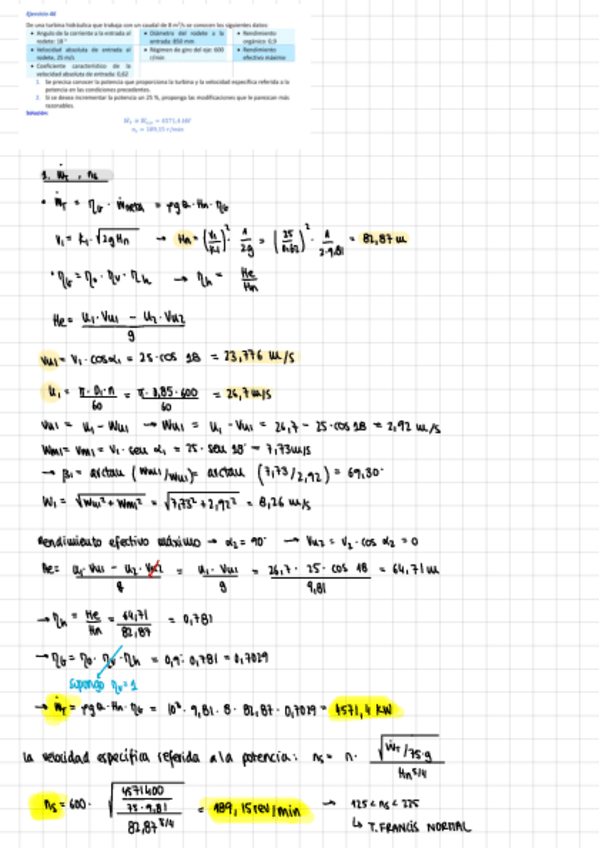 Ejercicio 48
De una turbina hidráulica que trabaja con un caudal de 8 m³/s se conocen los siguientes datos:
• Angulo de la corriente a la entrada al rodete: 18 °
• Diámetro del rodete a la entrada: 850 mm
• Rendimiento orgánico: 0,9
• Velocidad absoluta de entrada al rodete: 25 m/s
• Régimen de giro del eje: 600 r/min
• Rendimiento efectivo máximo
• Coeficiente característico de la velocidad absoluta de entrada: 0,62
1. Se precisa conocer la potencia que proporciona la turbina y la velocidad específica referida a la potencia en las condiciones precedentes.
2. Si se desea incrementar la potencia un 25 %, proponga las modificaciones que le parezcan más razonables.
Solución:
= 4571,4 kW
n_s = 189,15 r/min
1. Ẇ_T, n_s
• Ẇ_T = η_G · Ẇ_neta = ρgQ·Hn·η_G
V₁ = k₁·√2gHn → Hn = (V₁/k₁)² · 1/2g = (25/0,62)² · 1/2·9,81 = 82,87 m
• η_G = η_o · η_v · η_h → η_h = He/Hn
He = (u₁·Vu₁ − u₂·Vu₂)/g
Vu₁ = V₁·cosα₁ = 25·cos 18 = 23,776 m/s
u₁ = π·D₁·n/60 = π·0,85·600/60 = 26,7 m/s
Vu₁ = u₁ − Wu₁ → Wu₁ = u₁ − Vu₁ = 26,7 − 25·cos 18 = 2,92 m/s
Wm₁ = Vm₁ = V₁·sen α₁ = 25·sen 18° = 7,73 m/s
→ β₁ = arctan (Wm₁/Wu₁) = arctan (7,73/2,92) = 69,30°
W₁ = √Wu₁²+Wm₁² = √7,73²+2,92² = 8,26 m/s
Rendimiento efectivo máximo → α₂ = 90° → Vu₂ = V₂·cos α₂ = 0
He = (u₁·Vu₁ − u₂·Vu₂)/g = u₁·Vu₁/g = 26,7·25·cos 18/9,81 = 64,71 m
→ η_h = He/Hn = 64,71/82,87 = 0,781
→ η_G = η_o · η_v · η_h = 0,9·0,781 = 0,7029
Supongo η_v = 1
→ Ẇ_T = ρgQ·Hn·η_G = 10³·9,81·8·82,87·0,7029 = 4571,4 KW
La velocidad específica referida a la potencia: n_s = n·√(Ẇ_T/75·g)/Hn^5/4
n_s = 600·√(4571400/75·9,81)/82,87^5/4 = 189,15 rev/min → 125 < n_s < 225
↳ T. FRANCIS NORMAL